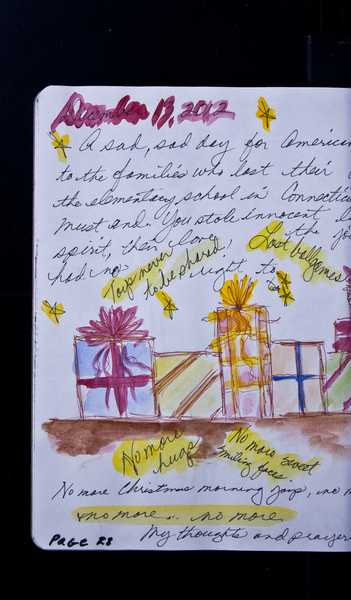 December 13, 2012
A sad, sad day for American
to the families who lost their
the elementary school in Connecticu
must end. You stole innocent l
spirit, their love, the jo
had no right to
Toys never
to be shared
Lost ballgames
No more
hugs
No more sweet
smiling faces.
No more Christmas morning joys, no m
no more.. no more
My thoughts and prayer
PAGE 28